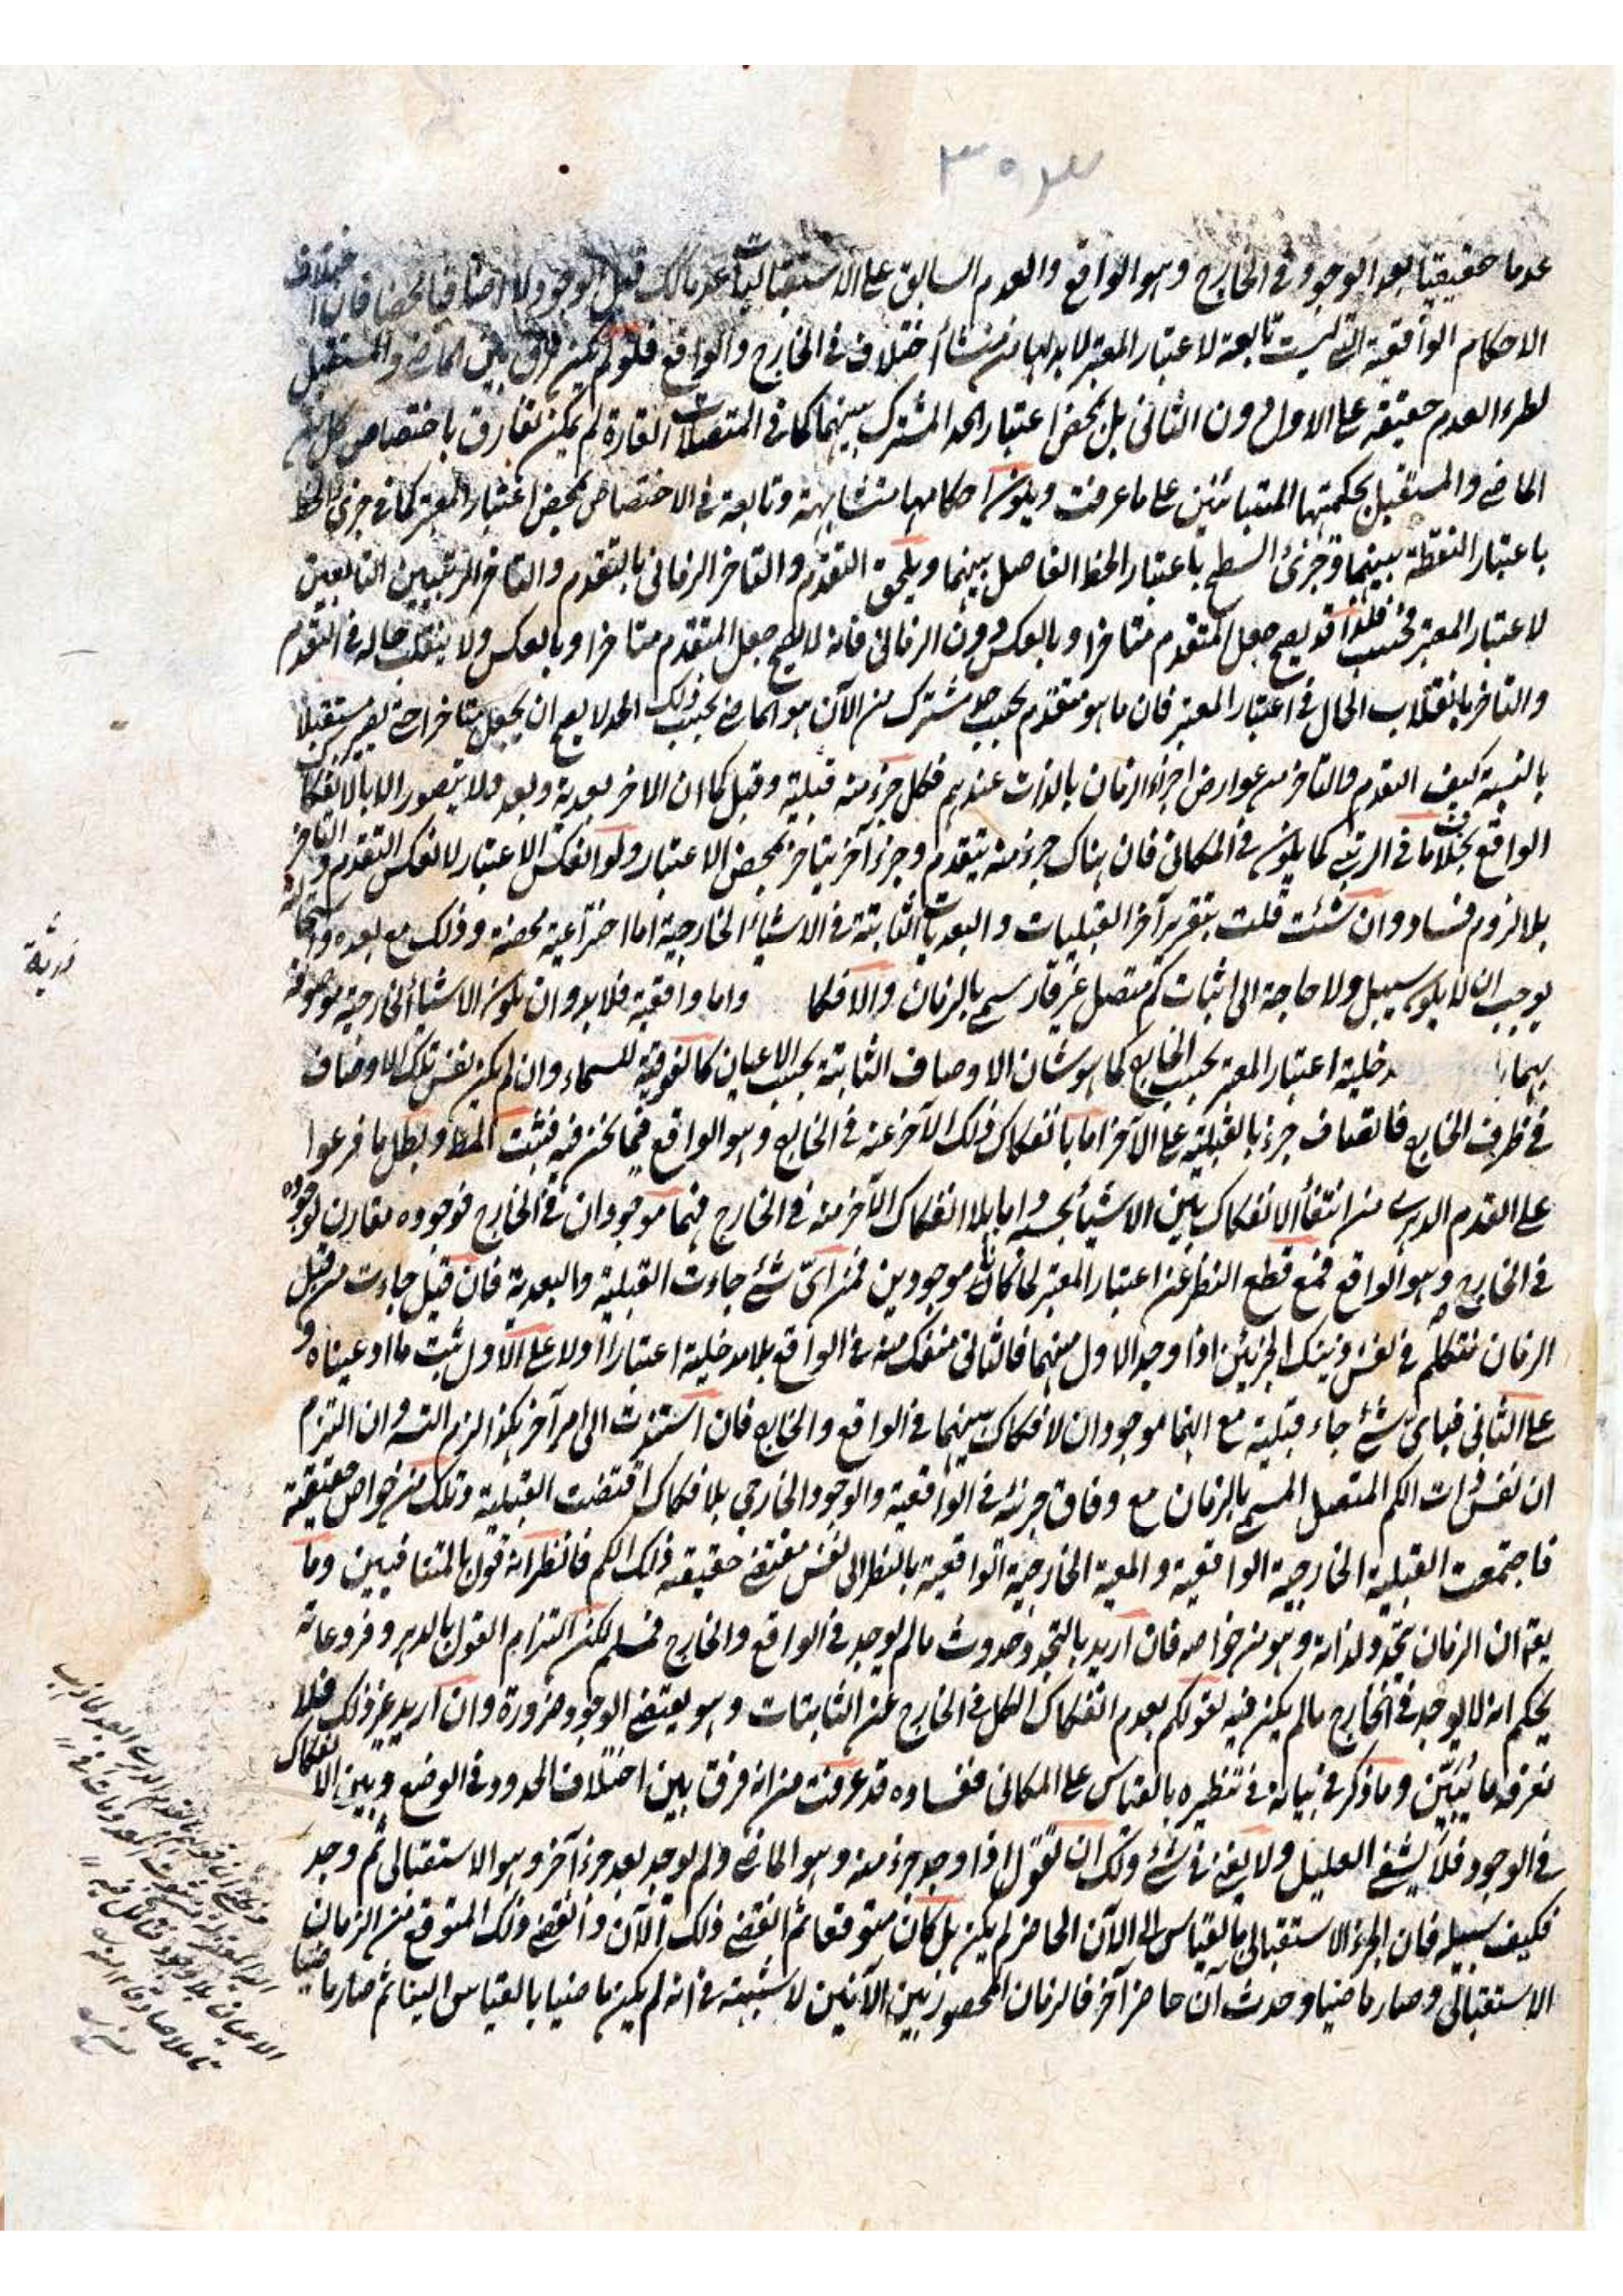 عدما حقيقيا بعد الوجود في الخارج وهو الواقع والعدم السابق على الاستقباليات عدما كذلك قبل الوجود لا اضافيا محضا فان اختلاف
الاحكام الواقعية التي ليست تابعة لاعتبار المعتبر لابد لها من منشأ اختلاف في الخارج والواقع فلو لم يكن فرق بين الماضي والمستقبل
لطرء العدم حقيقة على الاول دون الثاني بل بمحض اعتبار الحد المشترك بينهما كما في المتصلات القارة لم يمكن تفارق باختصاص كل من
الماضي والمستقبل بحكمتهما المتبائنين على ما عرفت ويكون احكامها متشابهة وتابعة في الاختصاص بمحض اعتبار المعتبر كما في جزئي الخط
باعتبار النقطة بينهما وجزئي السطح باعتبار الخط الفاصل بينهما ويلحق التقدم والتاخر الزماني بالتقدم والتاخر الرتبيين التابعين
لاعتبار المعتبر فحسب فلذا قد يصح جعل المتقدم متاخرا وبالعكس دون الزماني فانه لا يصح جعل المتقدم متاخرا وبالعكس ولا ينفك حاله في التقدم
والتاخر بانقلاب الحال في اعتبار المعتبر فان ما هو متقدم بحسب حد مشترك من الآن هو الماضي بحسب ذلك الحد لا يصح ان يجعل متاخرا حتى يصير مستقبلا
بالنسبة كيف التقدم والتاخر من عوارض اجزاء الزمان بالذات عندهم فكل جزء منه قبلية وقبل كما ان الاخر بعدية وبعد ولا يتصور الا بالانفكاك
الواقع بخلاف ما في الرتبي كما يكون في المكاني فان هناك جزء منه يتقدم وجزء آخر يتاخر بمحض الاعتبار ولو انعكس الاعتبار لانعكس التقدم والتاخر
بلا لزوم فساد وان شئت قلت بتقرير آخر القبليات والبعديات الثابتة في الاشياء الخارجية اما اختراعية محضة وذلك مع بعده
يوجب ان لا يكون سبيل ولا حاجة الى اثبات كم متصل غير قار سمي بالزمان والانفكا واما واقعية فلا بد وان يكون الاشياء الخارجية موصوفة
بهما دخلية اعتبار المعتبر بحسب الخارج كما هو شان الاوصاف الثابتة بحسب الاعيان كالفوقية للسماء وان لم يكن نفس تلك الاوصاف
في ظرف الخارج فاتصاف جزء بالقبلية على الآخر اما بانفكاك ذلك الآخر عنه في الخارج وهو الواقع فيما نحن فيه فثبت المط وبطل ما فرعوا
على القدم الدهري من انتفاء الانفكاك بين الاشياء بحسبه واما بلا انفكاك الآخر منه في الخارج فهما موجودان في الخارج فوجوده مقارن لوجوده
في الخارج وهو الواقع فمع قطع النظر عن اعتبار المعتبر لما كانا موجودين فمن اي شئ جاءت القبلية والبعدية فان قيل جاءت من قبل
الزمان نتكلم في نفس ذينك الجزئين اذا وجد الاول منهما فالثاني منفك منه في الواقع بلا مدخلية اعتبار او لا على الاول ثبت ما ادعيناه و
على الثاني فباي شئ جاء قبلية مع انهما موجودان لا انفكاك بينهما في الواقع والخارج فان استندت الى امر آخر هكذا لزم التسلسل وان التزم
ان نفس ذات الكم المتصل المسمى بالزمان مع وفاق جزئه في الواقعية والوجود الخارجي بلا انفكاك اقتضت القبلية وتلك من خواص حقيقة
فاجتمعت القبلية الخارجية الواقعية والمعية الخارجية الواقعية بالنظر الى نفس مقتضى حقيقة ذلك الكم فانظر انه قول بالمتنافيين وما
يقال ان الزمان تجدد لذاته وهو من خواصه فان اريد بالتجدد حدوث ما لم يوجد في الواقع والخارج فمسلم لكن التزام القول بالدهر وفروعاته
يحكم انه لا يوجد في الخارج ما لم يكن فيه لقولكم بعدم انفكاك الكل في الخارج عن الثابتات وهو يقتضي الوجود ضرورة وان اريد غير ذلك فلا
نعرفه ما يتبين وما ذكر في بيانه في تنظيره بالقياس على المكاني ففساده قد عرفت من انه فرق بين اختلاف الحدود في الوضع وبين الانفكاك
في الوجود فلا يشفي العليل ولا يغني في شئ ولك ان تقول اذا وجد جزء منه وهو الماضي ولم يوجد بعد جزء آخر وهو الاستقبالي ثم وجد
فكيف سبيله فان الجزء الاستقبالي بالقياس الى الآن الحاضر لم يكن بل كان متوقعا ثم انقضى ذلك الآن وانقضى ذلك المتوقع من الزمان
الاستقبالي وصار ماضيا وحدث ان حاضر آخر فالزمان المحصور بين الآنين لا شبهة في انه لم يكن ماضيا بالقياس الينا ثم صار ماضيا